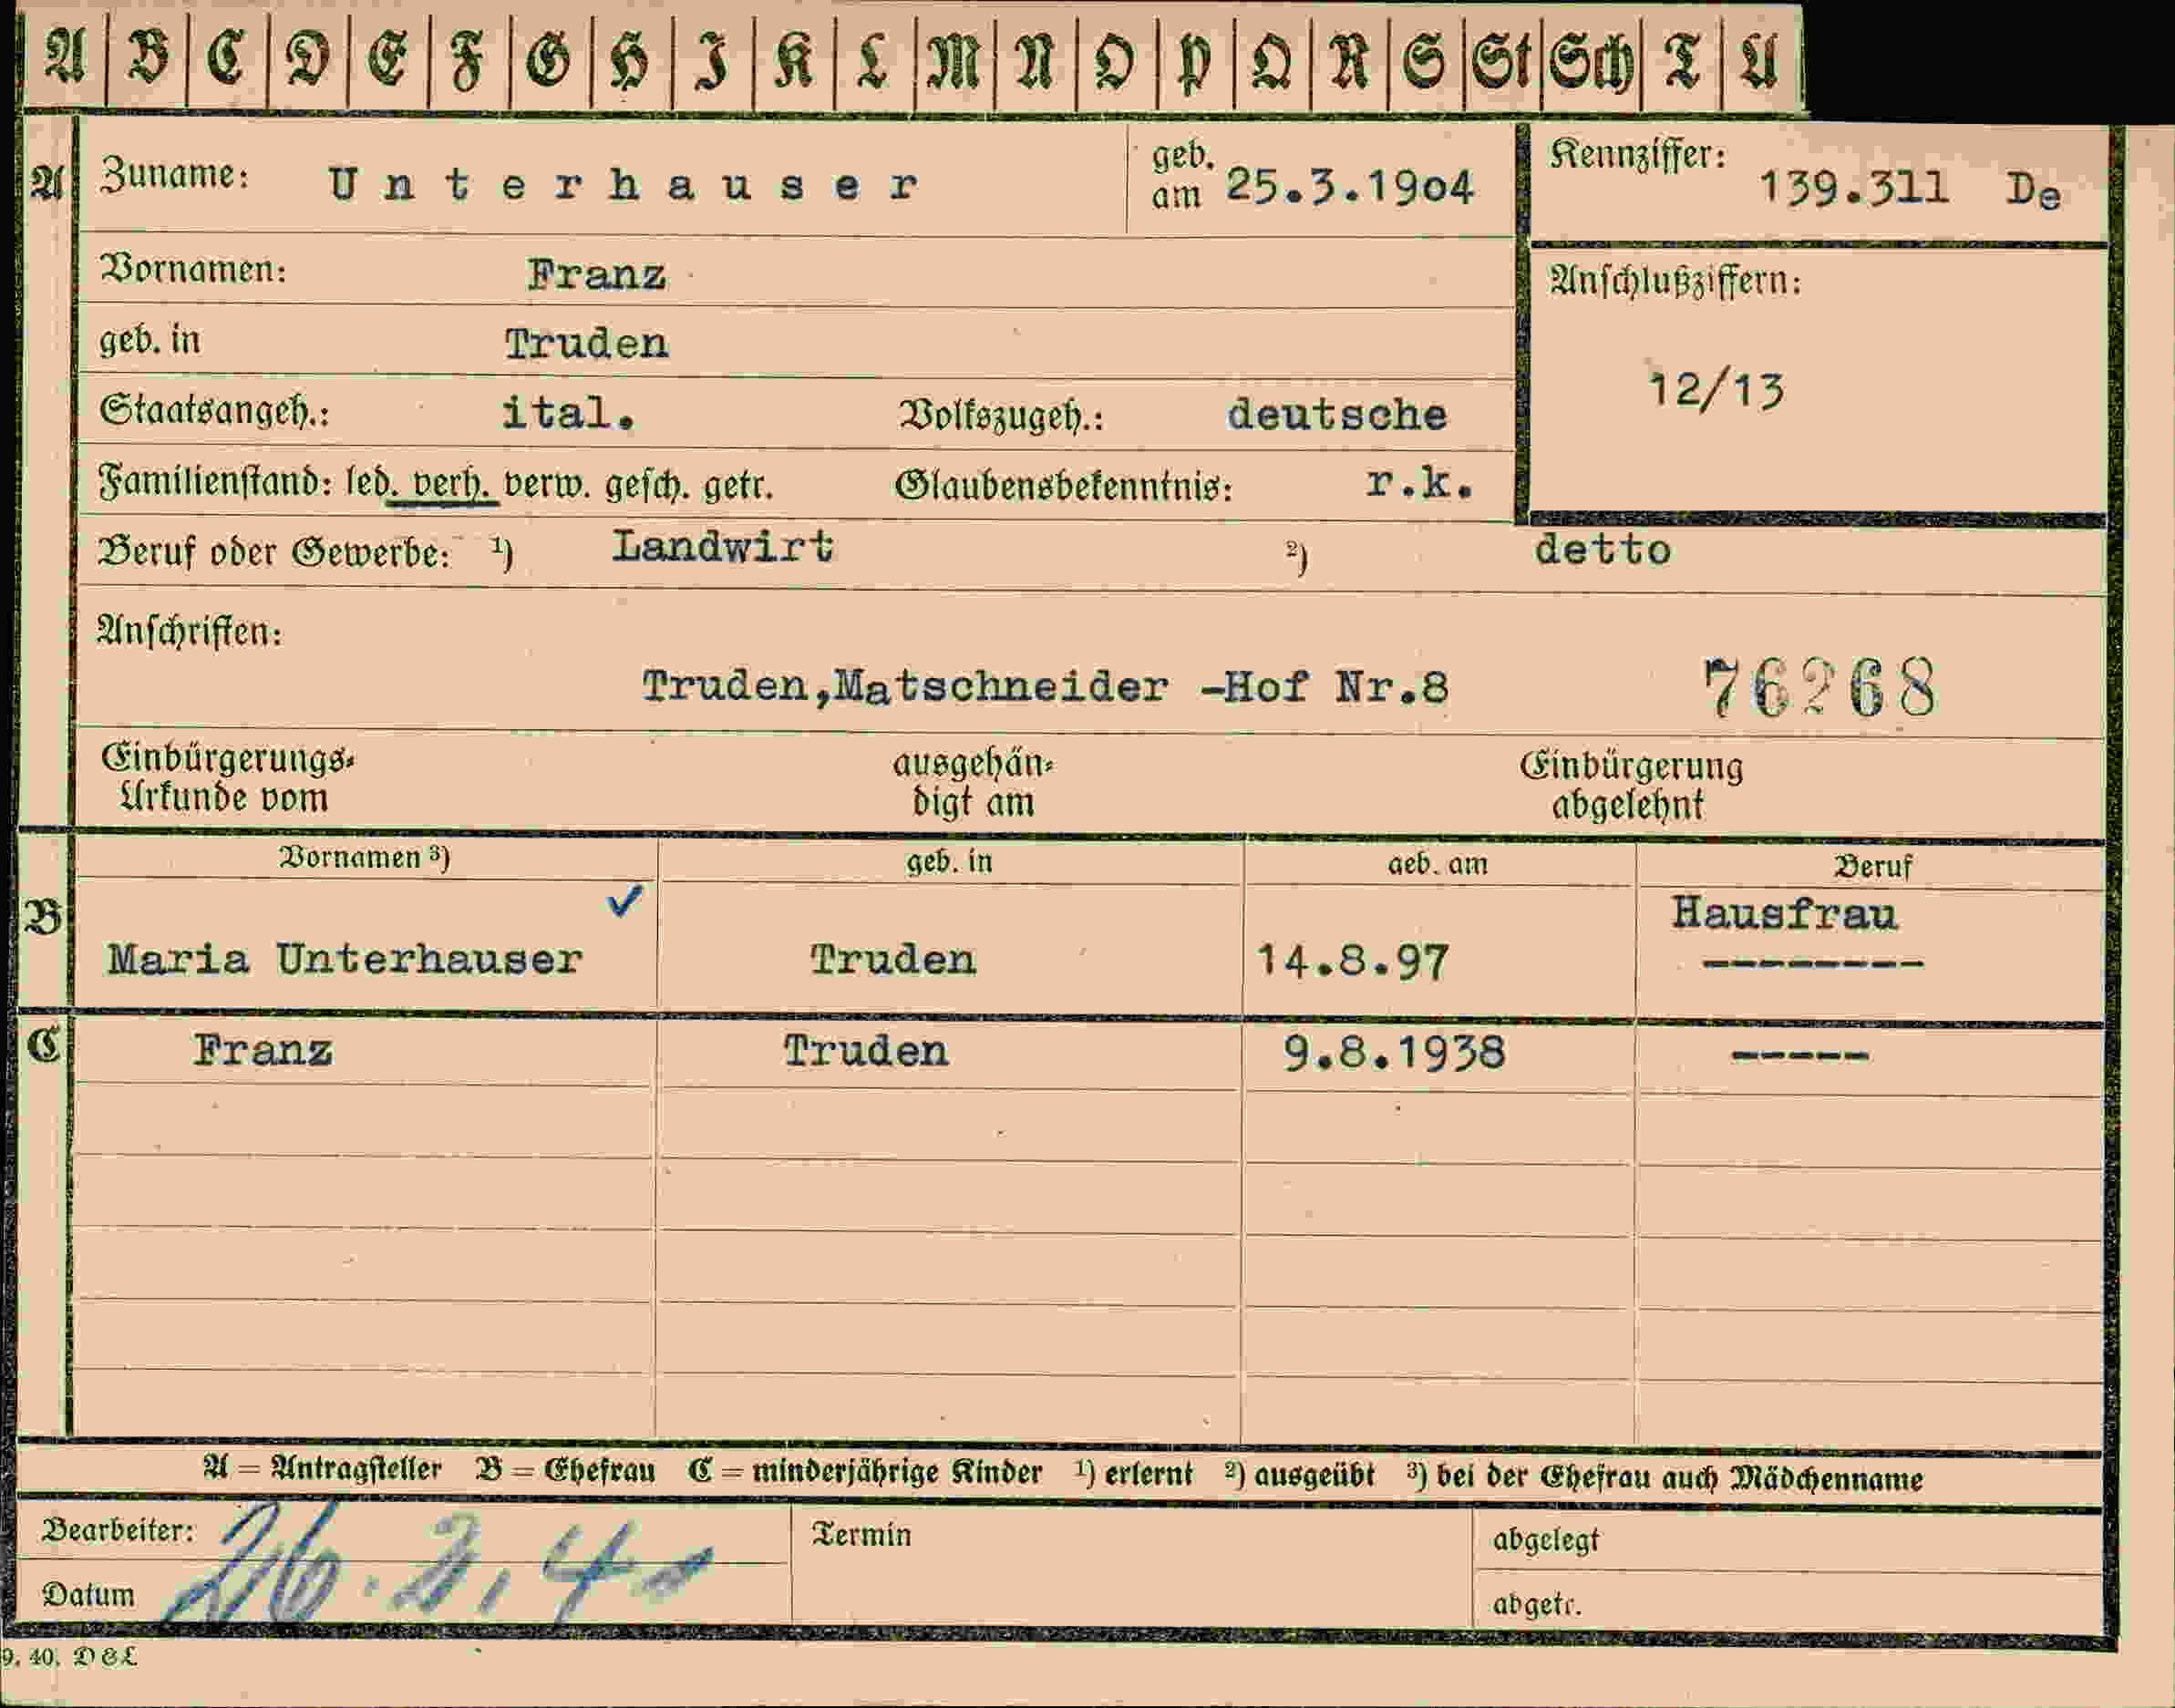 A B C D E F G H I K L M N O P Q R S St Sch T U
A Zuname: Unterhauser geb. am 25.3.19o4 Kennziffer: 139.311 De
Vornamen: Franz Anschlußziffern:
geb. in Truden 12/13
Staatsangeh.: ital. Volkszugeh.: deutsche
Familienstand: led. verh. verw. gesch. getr. Glaubensbekenntnis: r.k.
Beruf oder Gewerbe: 1) Landwirt 2) detto
Anschriften:
Truden,Matschneider -Hof Nr.8 76268
Einbürgerungs- ausgehän- Einbürgerung
Urkunde vom digt am abgelehnt
Vornamen 3) geb. in geb. am Beruf
B ✓ Hausfrau
Maria Unterhauser Truden 14.8.97 --------
C Franz Truden 9.8.1938 -----
A = Antragsteller B = Ehefrau C = minderjährige Kinder 1) erlernt 2) ausgeübt 3) bei der Ehefrau auch Mädchenname
Bearbeiter: Termin abgelegt
Datum abgetr.
9. 40.